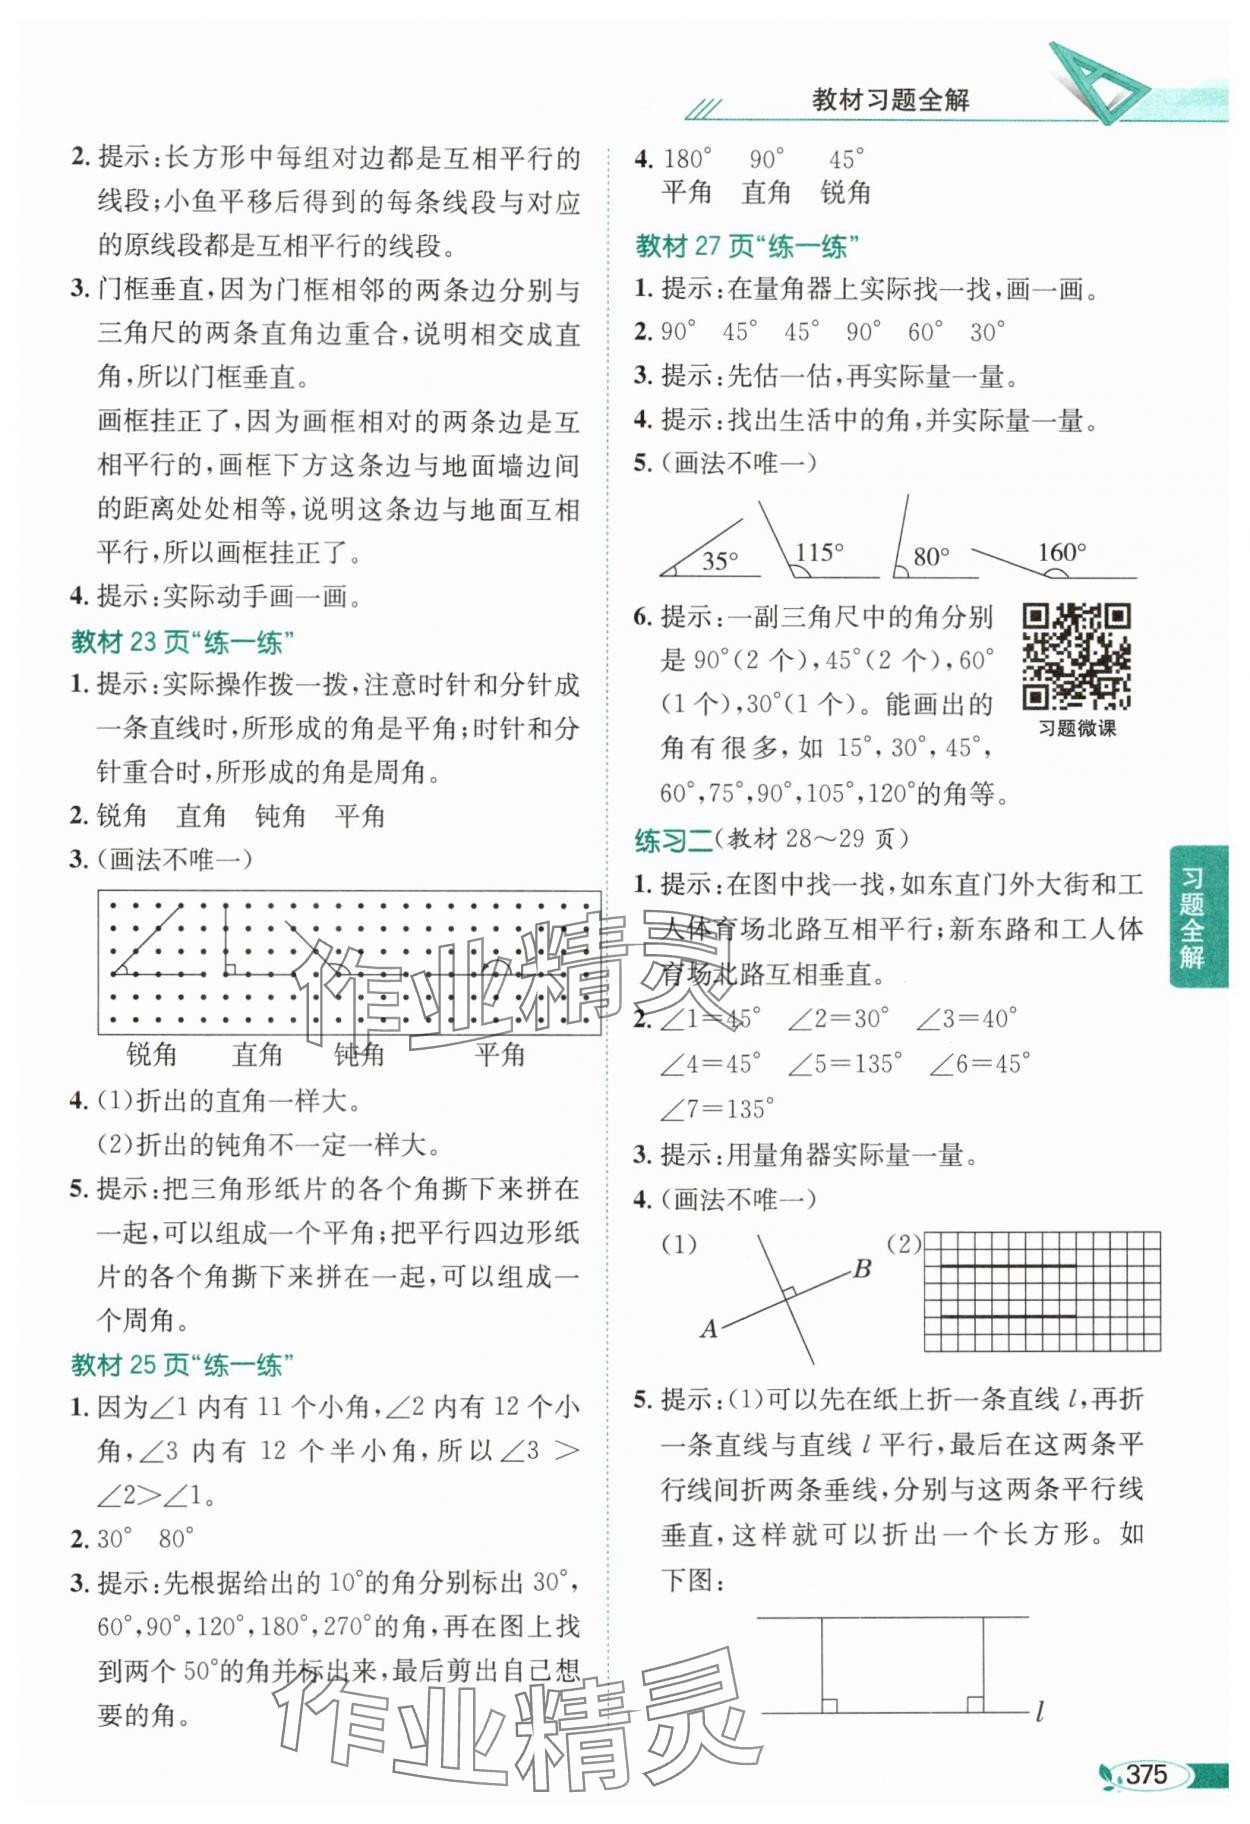 教材习题全解
2. 提示:长方形中每组对边都是互相平行的
线段;小鱼平移后得到的每条线段与对应
的原线段都是互相平行的线段。
3. 门框垂直,因为门框相邻的两条边分别与
三角尺的两条直角边重合,说明相交成直
角,所以门框垂直。
画框挂正了,因为画框相对的两条边是互
相平行的,画框下方这条边与地面墙边间
的距离处处相等,说明这条边与地面互相
平行,所以画框挂正了。
4. 提示:实际动手画一画。
教材 23 页“练一练”
1. 提示:实际操作拨一拨,注意时针和分针成
一条直线时,所形成的角是平角;时针和分
针重合时,所形成的角是周角。
2. 锐角 直角 钝角 平角
3. (画法不唯一)
锐角 直角 钝角 平角
4. (1)折出的直角一样大。
(2)折出的钝角不一定一样大。
5. 提示:把三角形纸片的各个角撕下来拼在
一起,可以组成一个平角;把平行四边形纸
片的各个角撕下来拼在一起,可以组成一
个周角。
教材 25 页“练一练”
1. 因为∠1 内有 11 个小角,∠2 内有 12 个小
角,∠3 内有 12 个半小角,所以∠3 >
∠2>∠1。
2. 30° 80°
3. 提示:先根据给出的 10°的角分别标出 30°,
60°,90°,120°,180°,270°的角,再在图上找
到两个 50°的角并标出来,最后剪出自己想
要的角。
4. 180° 90° 45°
平角 直角 锐角
教材 27 页“练一练”
1. 提示:在量角器上实际找一找,画一画。
2. 90° 45° 45° 90° 60° 30°
3. 提示:先估一估,再实际量一量。
4. 提示:找出生活中的角,并实际量一量。
5. (画法不唯一)
35° 115° 80° 160°
6. 提示:一副三角尺中的角分别
是 90°(2 个),45°(2 个),60°
(1 个),30°(1 个)。能画出的
角有很多,如 15°,30°,45°,
60°,75°,90°,105°,120°的角等。
习题微课
练习二(教材 28～29 页)
1. 提示:在图中找一找,如东直门外大街和工
人体育场北路互相平行;新东路和工人体
育场北路互相垂直。
2. ∠1=45° ∠2=30° ∠3=40°
∠4=45° ∠5=135° ∠6=45°
∠7=135°
3. 提示:用量角器实际量一量。
4. (画法不唯一)
(1) A B (2)
5. 提示:(1)可以先在纸上折一条直线 l,再折
一条直线与直线 l 平行,最后在这两条平
行线间折两条垂线,分别与这两条平行线
垂直,这样就可以折出一个长方形。如
下图:
l
习题全解
375
作业精灵
作业精灵